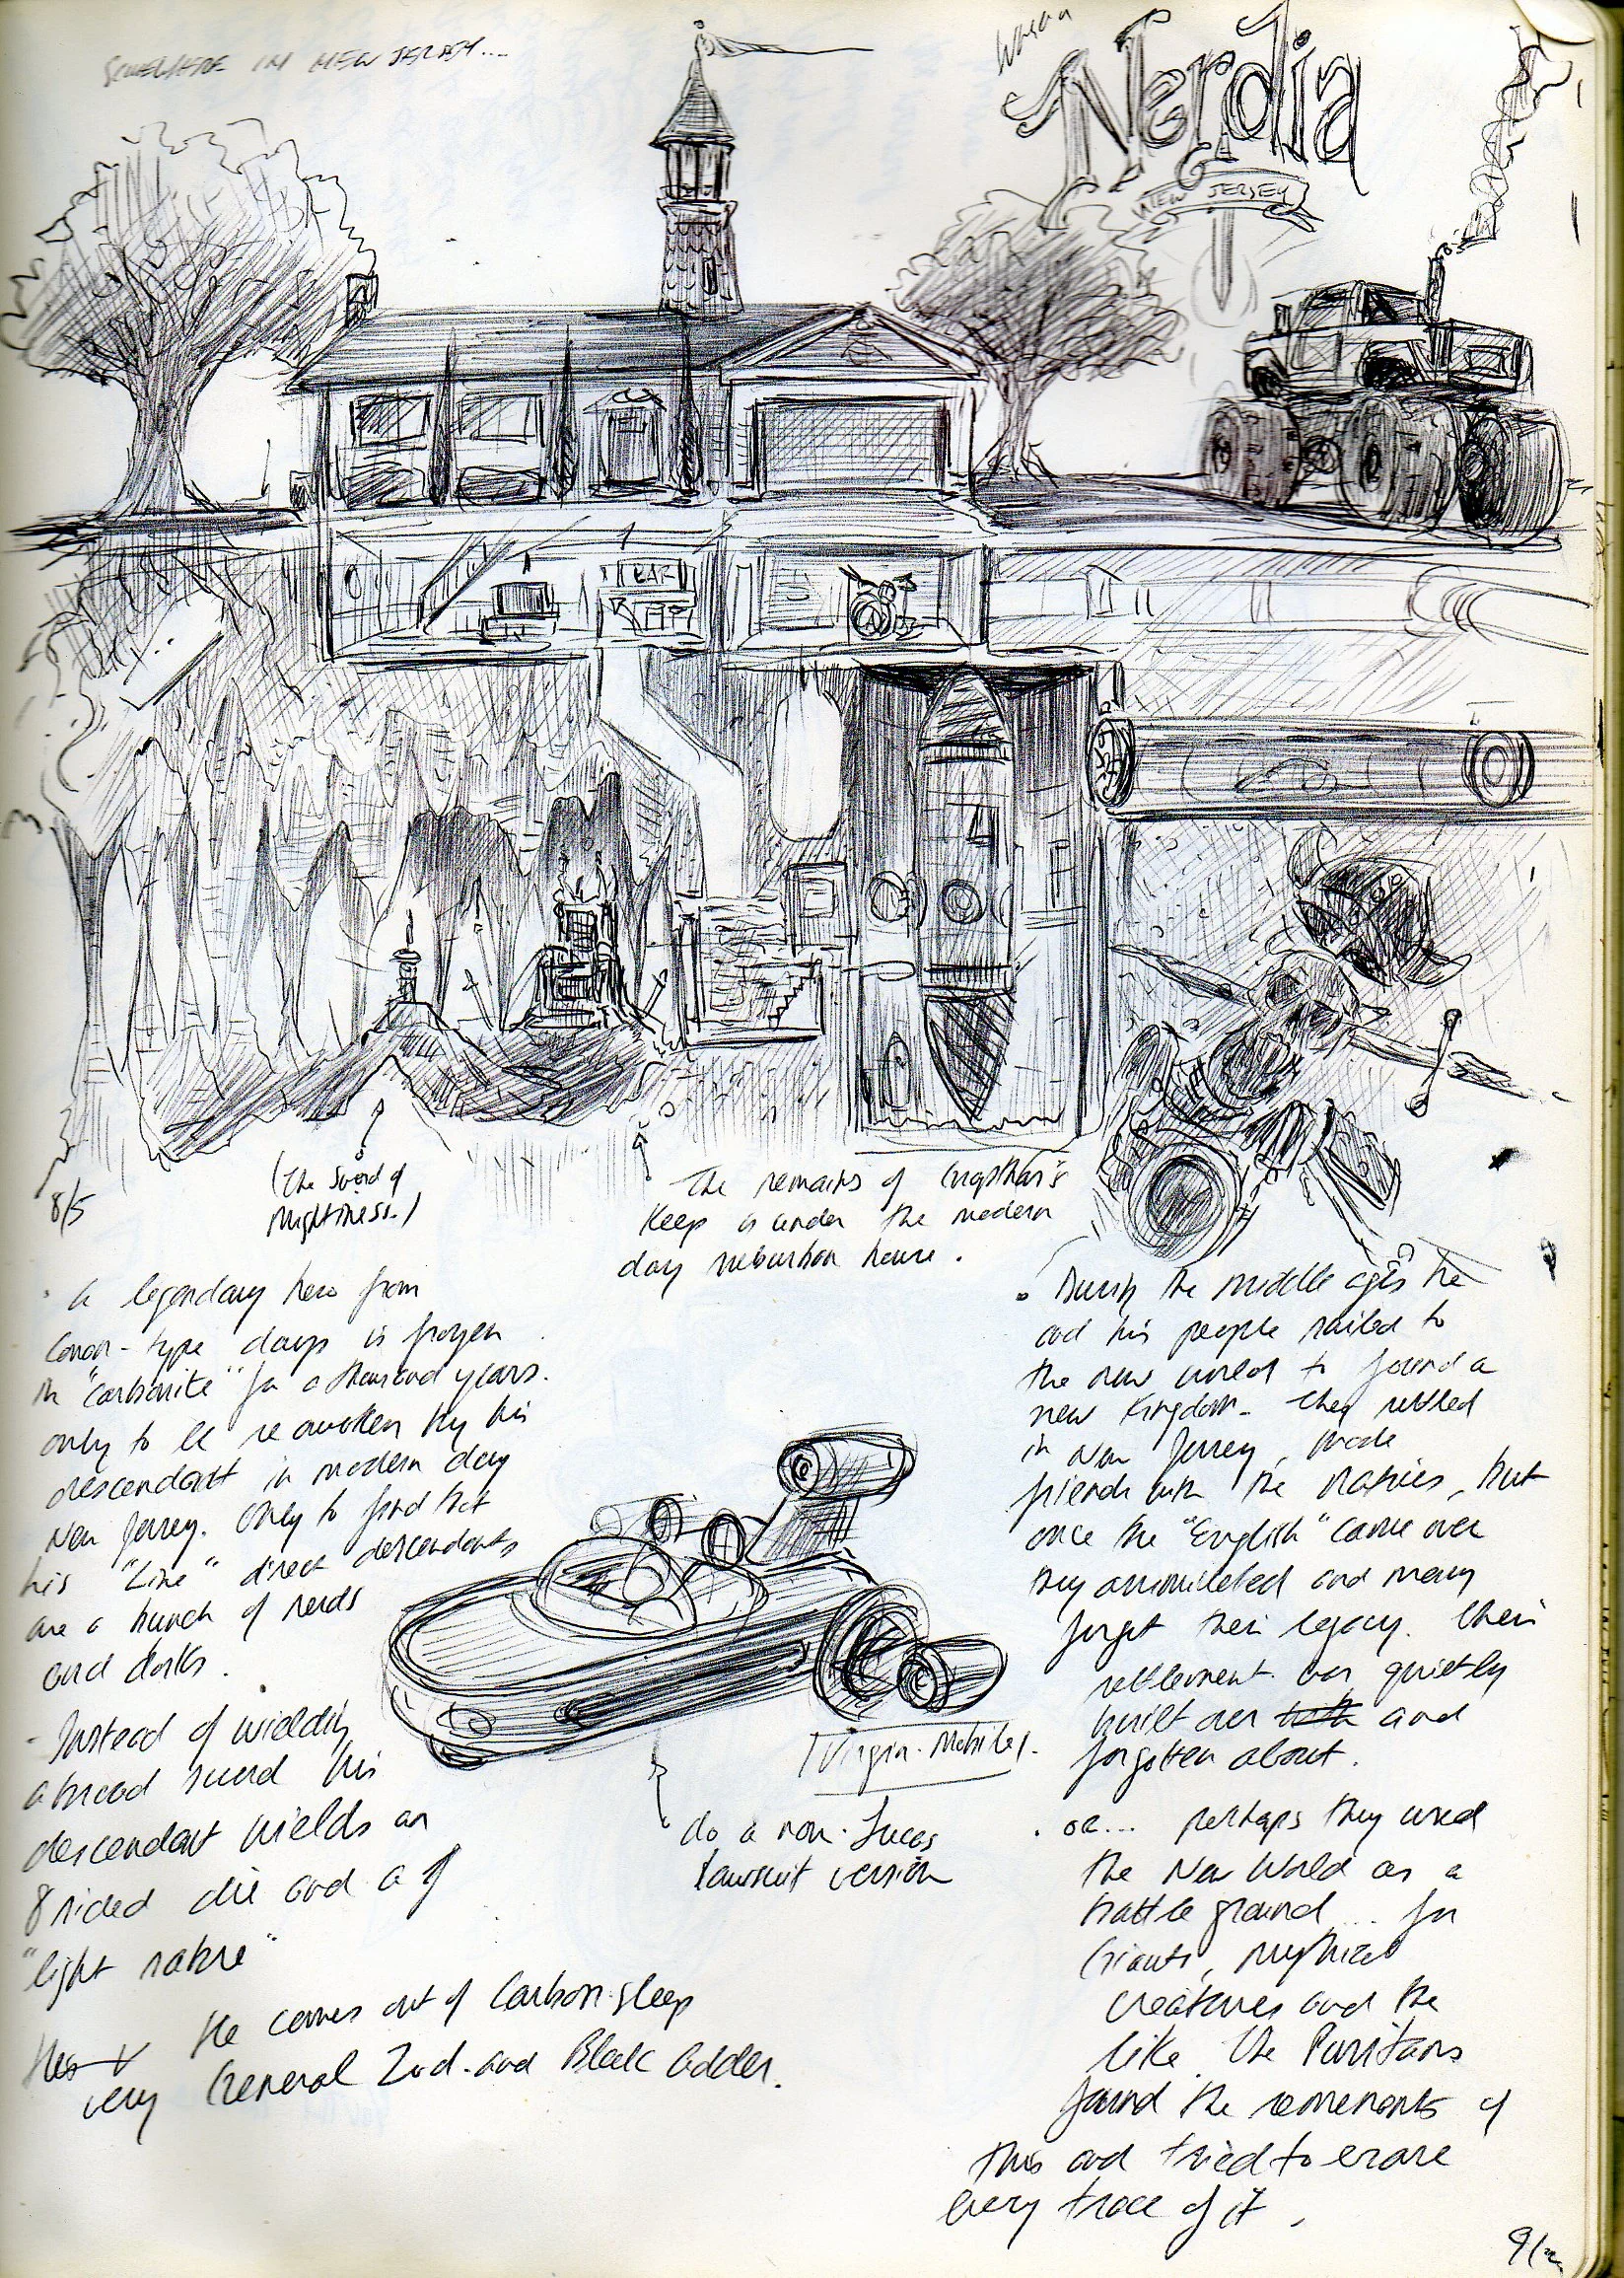 SOMEWHERE IN NEW JERSEY....
Nerdia
NEW JERSEY
BAR
8/5
(The Sword of
Mightiness.)
The remains of
Keep is under the modern
day suburban house.
. A legendary hero from
Conan-type days is frozen
in "carbonite" for a thousand years.
only to be reawoken by his
descendant in modern day
New Jersey. Only to find that
his "Line" direct descendants
are a bunch of nerds
and dorks.
- Instead of wielding
a broad sword his
descendant wields an
8 sided die and a
"light sabre"
He comes out of Carbon-sleep
very General Zod-and Black Adder.
(Virgin-Mobile).
do a non-Lucas
lawsuit version
. During the middle ages he
and his people sailed to
the new world to found a
new Kingdom- They settled
in New Jersey, made
friends with the natives, but
once the "English" came over
they assimilated and many
forgot their legacy. Their
settlement was quietly
built over and
forgotten about.
. OR... perhaps they used
the New World as a
battle ground ... for
Giants, mythical
creatures and the
like. The Puritans
found the remenants of
this and tried to erase
every trace of it.